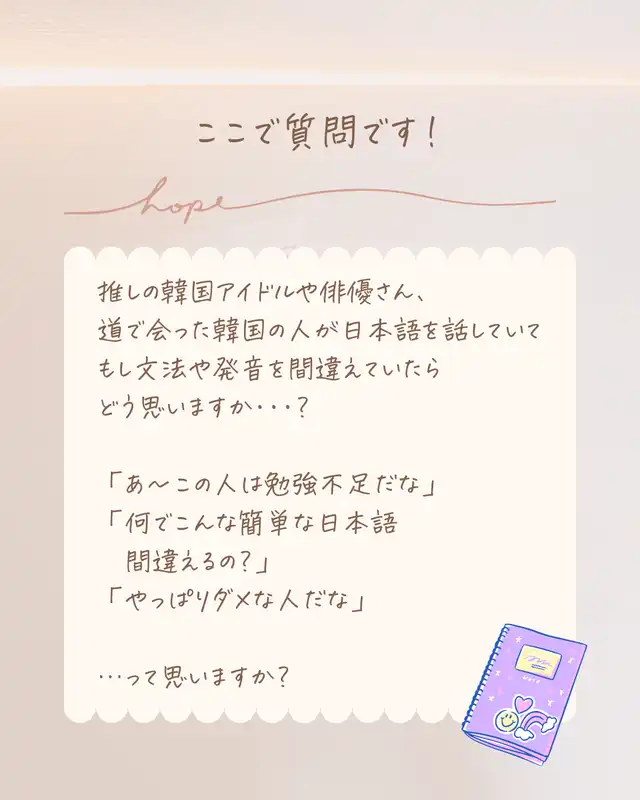 ここで質問です！
hope
推しの韓国アイドルや俳優さん、
道で会った韓国の人が日本語を話していて
もし文法や発音を間違えていたら
どう思いますか・・・？
「あ〜この人は勉強不足だな」
「何でこんな簡単な日本語
間違えるの？」
「やっぱりダメな人だな」
…って思いますか？
NOTE